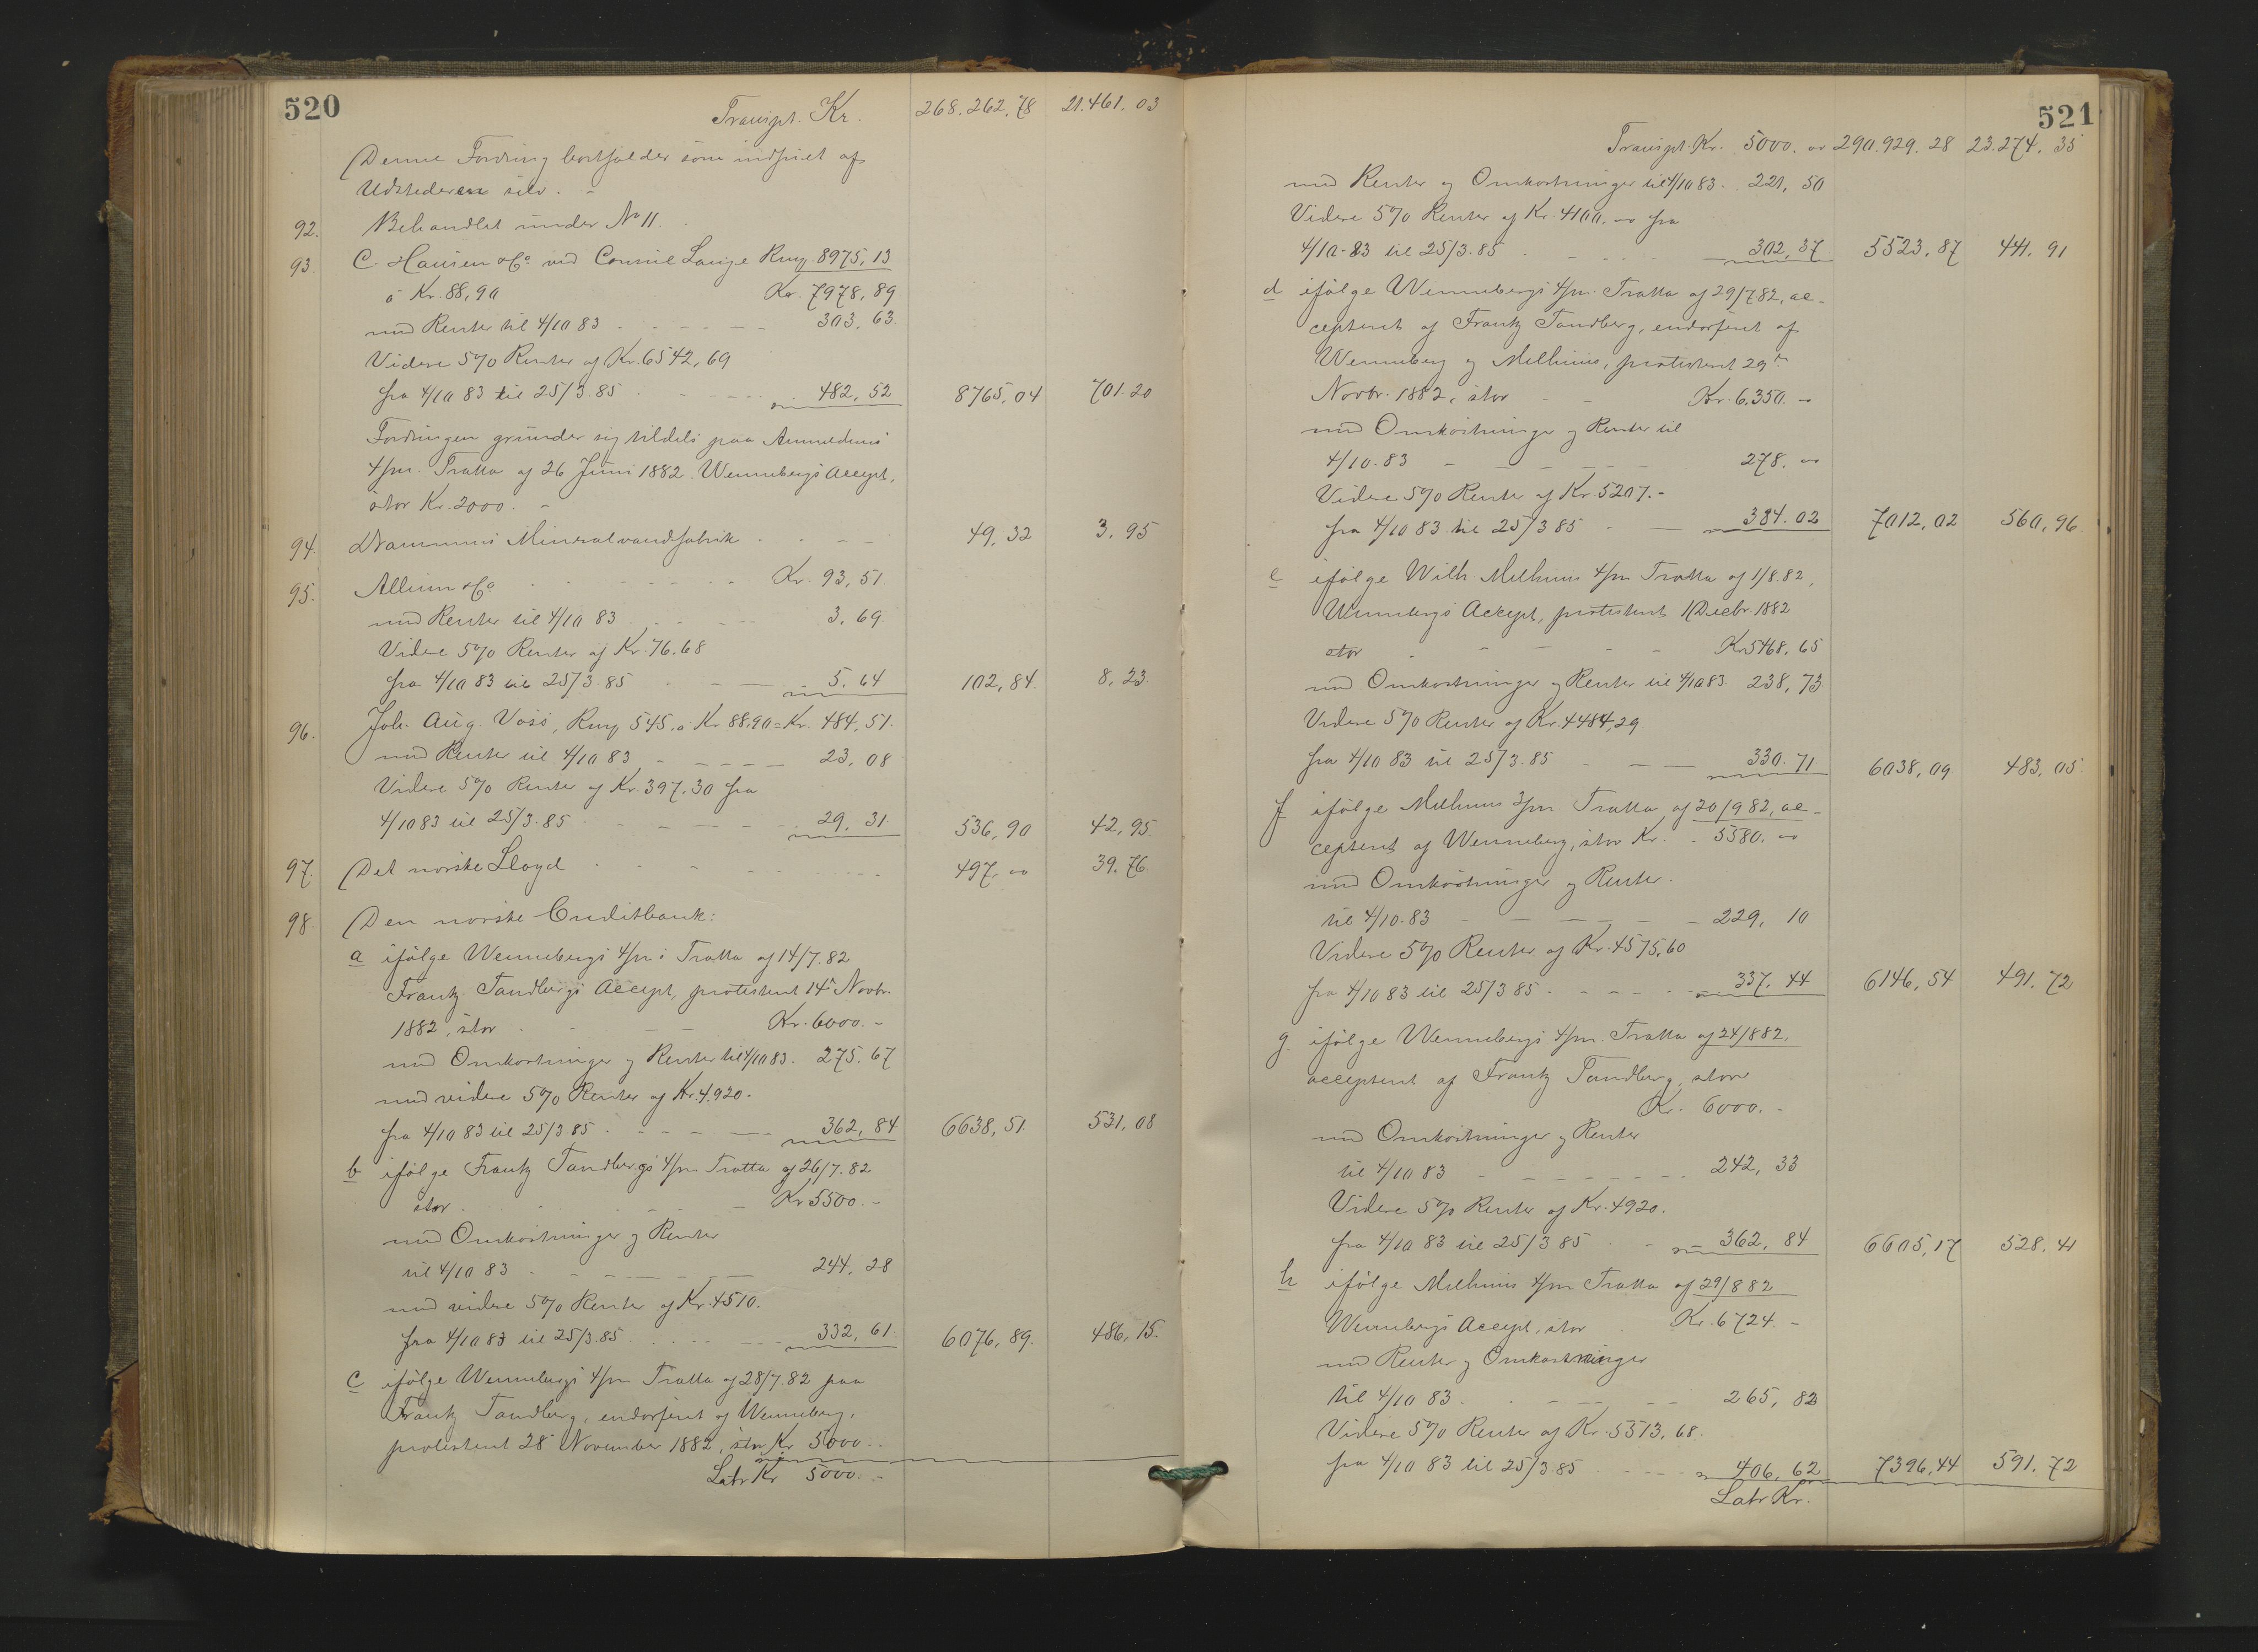 520
Transpt. Kr. 268.262,78 21.461.03
Denne Fordring bortfalder som indfriet af
Udstederen selv. -
92. Behandlet under No 11.
93. C. Hansen & Co ved Consul Lange Rmf. 8975,13
à Kr. 88,90 Kr. 7978,89
med Renter til 4/10 83 303,63
Videre 5% Renter af Kr. 6542,69
fra 4/10 83 til 25/3.85 482,52 8765,04 701.20
Fordringen grunder sig tildels paa Anmelderens
4/m. Tratta af 26 Juni 1882. Wennebergs Accept,
stor Kr. 2000. -
94. Drammens Mineralvandfabrik 49,32 3,95
95. Allum & Co Kr. 93,51
med Renter til 4/10 83 3,69
Videre 5% Renter af Kr. 76.68
fra 4/10 83 til 25/3.85 5.64 102,84 8,23
96. Joh. Aug. Voss, Rmf 545, à Kr 88.90 = Kr. 484,51
med Renter til 4/10 83 23,08
Videre 5% Renter af Kr. 397.30 fra
4/10 83 til 25/3.85 29.31 536,90 42,95
97. Det norske Lloyd 497,00 39.76
98. Den norske Creditbank:
a ifølge Wennebergs 4/m Tratta af 14/7.82
Frantz Tandbergs Accept, protesteret 14de Novbr.
1882, stor Kr. 6000. -
med Omkostninger og Renter til 4/10 83. 275.67
med videre 5% Renter af Kr. 4.920. -
fra 4/10 83 til 25/3.85 362,84 6638,51 531,08
b ifølge Frantz Tandbergs 4/m Tratta af 26/7.82
stor Kr 5500. -
med Omkostninger og Renter
til 4/10 83 244,28
med videre 5% Renter af Kr. 4510.
fra 4/10 83 til 25/3.85 332,61 6076,89. 486,15.
c ifølge Wennebergs 4/m Tratta af 28/7 82 paa
Frantz Tandberg, endorseret af Wenneberg,
protesteret 28 November 1882, stor Kr 5000..
Latr Kr 5000. -
521
Transpt. Kr. 5000. 00 290.929.28 23.274.35
med Renter og Omkostninger til 4/10 83. 221,50
Videre 5% Renter af Kr. 4100. 00 fra
4/10-83 til 25/3.85 302,37 5523,87 441.91
d ifølge Wennebergs 4/m. Tratta af 29/7 82, ac-
cepteret af Frantz Tandberg, endorseret af
Wenneberg og Melhuus, protesteret 29de
Novbr. 1882, stor Kr. 6.350. 00
med Omkostninger og Renter til
4/10-83 278. 00
Videre 5% Renter af Kr. 5207. -
fra 4/10 83 til 25/3 85 384.02 7012,02 560,96
e ifølge Wilh. Melhuus 4/m Tratta af 1/8.82,
Wennebergs Accept, protesteret 1 Decbr. 1882
stor Kr 5468,65
med Omkostninger og Renter til 4/10 83. 238,73
Videre 5% Renter af Kr. 4484,29
fra 4/10 83 til 25/3.85 330.71 6038,09 483,05
f ifølge Melhuus 3/m. Tratta af 20/9 82, ac-
cepteret af Wenneberg, stor Kr. 5580. 00
med Omkostninger og Renter.
til 4/10-83 229,10
Videre 5% Renter af Kr. 4575,60
fra 4/10 83 til 25/3 85 337.44 6146,54 491.72
g. ifølge Wennebergs 4/m. Tratta af 24/8 82,
accepteret af Frantz Tandberg, stor
Kr. 6000. -
med Omkostninger og Renter
til 4/10 83 242,33
Videre 5% Renter af Kr. 4920.
fra 4/10 83 til 25/3 85 362,84 6605,17 528.41
h ifølge Melhuus 4/m Tratta af 29/8 82
Wennebergs Accept, stor Kr. 6724. -
med Renter og Omkostninger
til 4/10 83 265,82
Videre 5% Renter af Kr. 5513,68
fra 4/10 83 til 25/3 85 406,62 7396,44 591.72
Latr Kr.